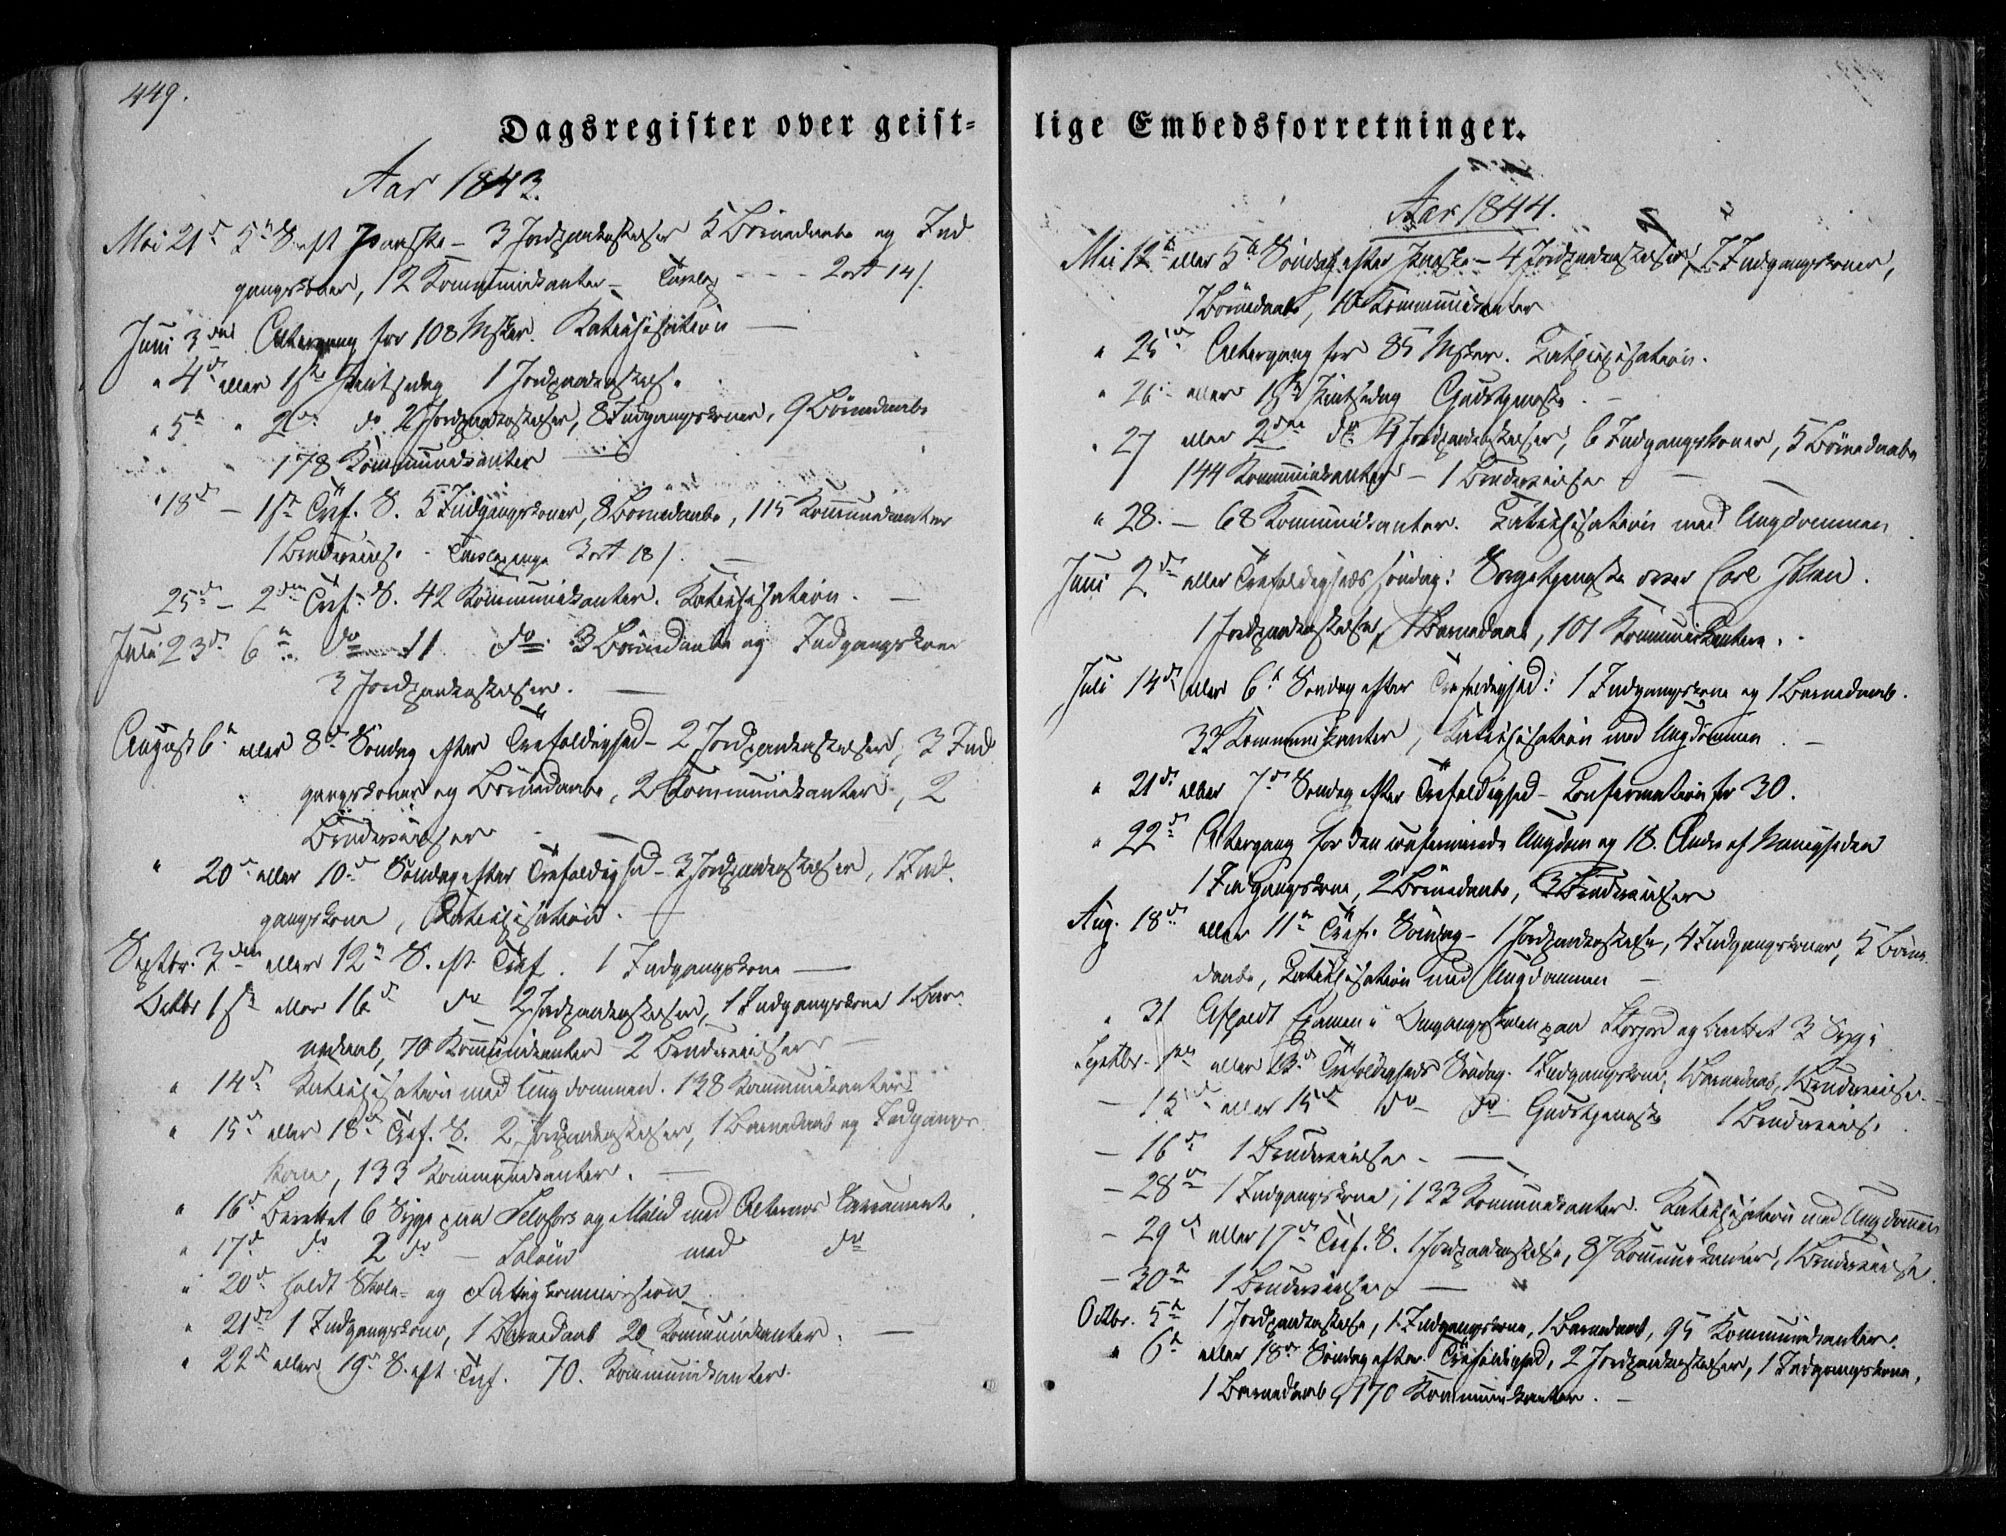 449.
Dagsregister over geist-
Aar 1843.
Mai 21d 5te S. eft Paaske – 3 Jordpaakastelser 5 Børnedaabe og Ind
gangskoner, 12 Kommunikanter – Tavlep - - - 2 ort 14 s.
Juni 3die Altergang for 108 Msker. Katechisation —
" 4d eller 1ste Pintsedag 1 Jordpaakastelse
" 5t " 2den do 2 Jordpaakastelser, 8 Indgangskoner, 9 Børnedaabe
178 Kommunikanter —
" 18d – 1ste Tref. S. 5 Indgangskoner, 8 Børnedaabe, 115 Kommunikanter
1 Brudevielse - Tavlepenge 3 ort 18 s. —
25d – 2den Tref. S. 42 Kommunikanter. Katechisation. —
Juli 23d 6te do 11 do 3 Børnedaabe og Indgangskoner
3 Jordpaakastelser. —
August 6t eller 8d Søndag efter Trefoldighed – 2 Jordpaakastelser, 3 Ind
gangskoner og Børnedaabe, 2 Kommunikanter, 2
Brudevielser —
" 20d eller 10d Søndag efter Trefoldighed – 3 Jordpaakastelser, 1 Ind-
gangskone, Katechisation. —
Septbr. 3die eller 12te S. eft. Tref. 1 Indgangskone —
Octbr 1ste eller 16d do 2 Jordpaakastelser, 1 Indgangskone 1 Bar-
nedaab, 70 Kommunikanter 2 Brudevielser —
" 14d Katechisation med Ungdommen. 138 Kommunikanter
" 15d eller 18d Tref. S. 2 Jordpaakastelser, 1 Barnedaab og Indgangs-
kone, 133 Kommunikanter. —
" 16d Berettet 6 Syge paa og med Alterens Sacramente
" 17d do 2 do – med do
" 20d holdt Skole- og Fattigkommission
" 21d 1 Indgangskone, 1 Barnedaab 20 Kommunikanter. —
" 22d eller 19d S. eft Tref. 70. Kommunikanter.
lige Embedsforretninger.
Aar 1844.
Mai 12te eller 5te Søndag efter Paaske – 4 Jordpaakastelser, 7 Indgangskoner,
7 Børnedaabe, 10 Kommunikanter
" 25de Altergang for 85 Msker. Katechisation.
" 26 eller 1ste Pintsedag Gudstjeneste. –
" 27 eller 2den do 4 Jordpaakastelser, 6 Indgangskoner, 5 Børnedaabe
144 Kommunikanter – 1 Brudevielse —
" 28. – 68 Kommunikanter. Katechisation med Ungdommen
Juni 2d eller Trefoldigheds søndag: Sørgetjeneste over Carl Johan.
1 Jordpaakastelse, 1 Barnedaab, 101 Kommunikantere.
Juli 14d eller 6t Søndag efter Trefoldighed: 1 Indgangskone og 1 Barnedaab.
33 Kommunikanter, Katechisation med Ungdommen. –
" 21d eller 7d Søndag efter Trefoldighed – Confirmation for 30.
" 22d Altergang for den confirmerede Ungdom og 18. Andre af Menigheden
1 Indgangskone, 2 Børnedaabe, 3 Brudevielser
Aug. 18d eller 11te Tref. Søndag – 1 Jordpaakastelse, 4 Indgangskoner, 5 Børne-
daabe, Katechisation med Ungdommen —
" 31 Afholdt Examen i Omgangsskolen paa Storjord og berettet 3 Syge
Septbr. 1ste eller 13d Trefoldigheds Søndag. 1 Indgangskone, 1 Barnedaab, 1 Brudevielse. –
– 15d eller 15d do do Gudstjeneste 1 Brudevielse
– 16d 1 Brudevielse. —
– 28d 1 Indgangskone, 133 Kommunikanter. Katechisation med Ungdommen
– 29d eller 17d Tref. S. 1 Jordpaakastelse, 87 Kommunikanter, 1 Brudevielse.
– 30te 1 Brudevielse —
Octbr. 5te 1 Jordpaakastelse, 1 Indgangskone, 1 Barnedaab, 95 Kommunikanter.
" 6t eller 18d Søndag efter Trefoldighed, 2 Jordpaakastelser, 1 Indgangskone,
1 Barnedaab, 170 Kommunikanter. –